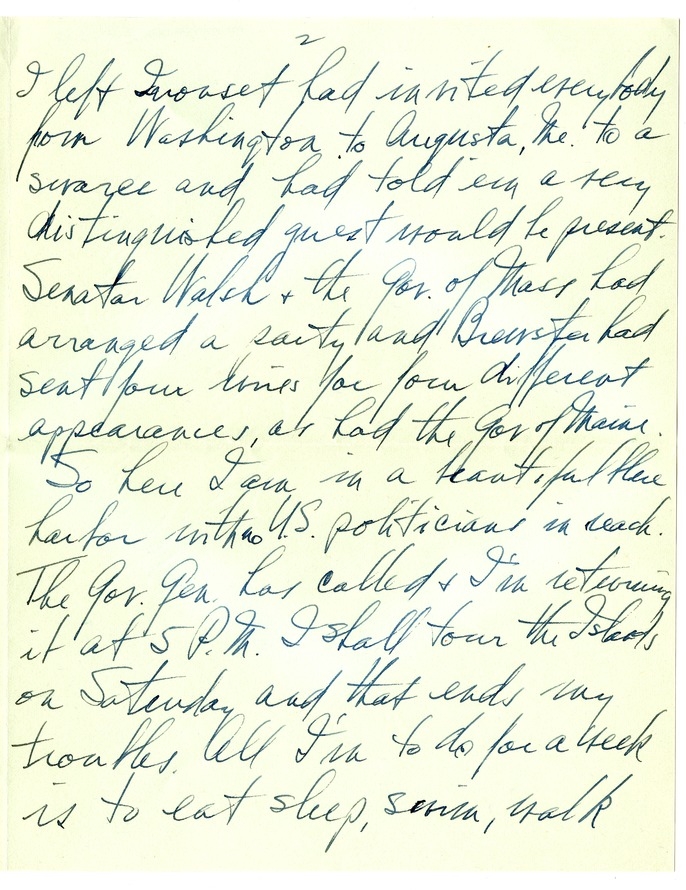 2
I left Quonset had invited everybody
from Washington to Augusta, Me. to a
swaree and had told em a very
distinguished guest would be present.
Senator Walsh & the Gov. of Mass had
arranged a party and Brewster had
sent four wires for four different
appearances, as had the Gov of Maine.
So here I am in a beautiful blue
harbor with no U.S. politicians in reach.
The Gov. Gen. has called & I'm returning
it at 5 P.M. I shall tour the Islands
on Saturday and that ends my
troubles. All I'm to do for a week
is to eat sleep, swim, walk